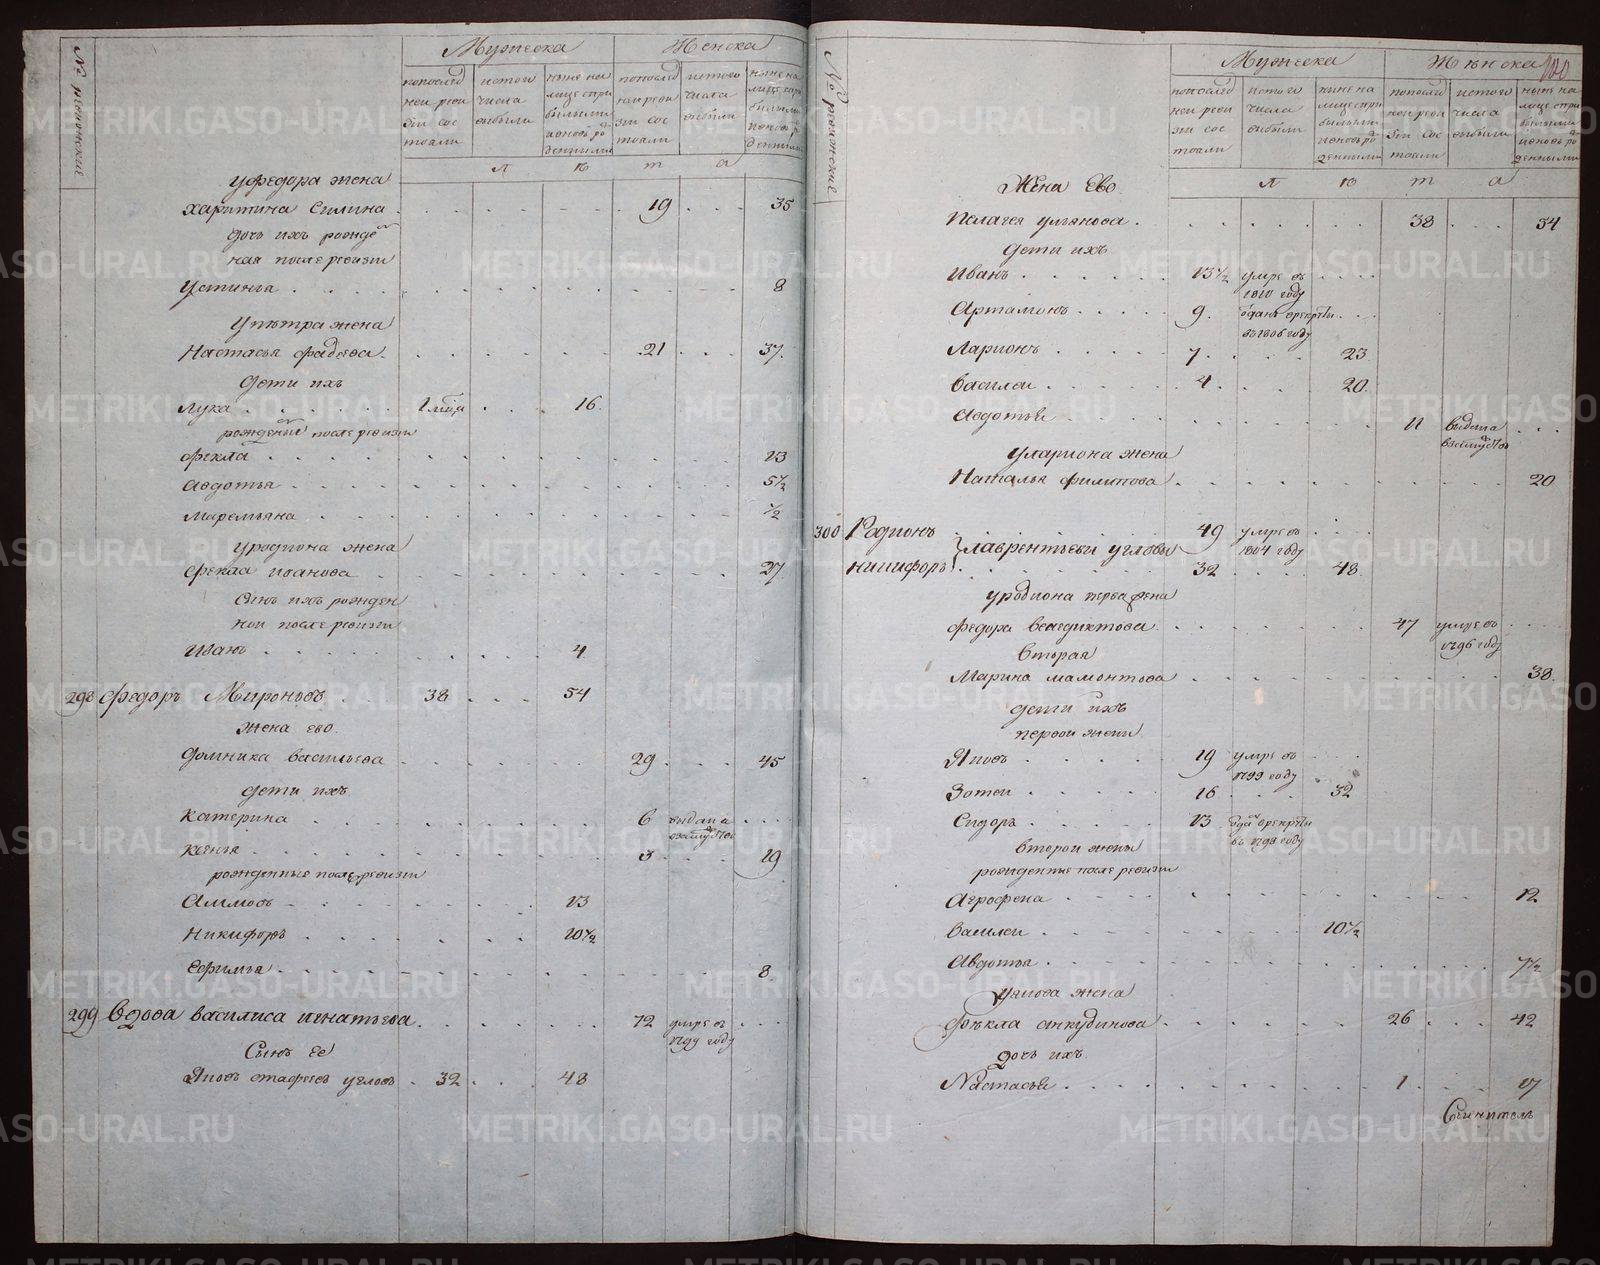 № ревижские
Мужеска
Женска
попослед
ней реви
зіи сос
тоали
исто­го
числа
выбыли
ныне на
лице спри
былыми
иновь ро
денными
попослед
ней реви
зіи сос
тоали
истого
числа
выбыли
ныне на
лице спри
былыми
иновь ро
денными
л ѣ т а
уфедора жена
Харитина Силина 19 35
дочь ихъ рожде
ная после ревизіи
Устинья 8
упѣтра жена
Настасья фадѣева 21 37
дети ихъ
лука 1 меся 16
рожденыи после ревизіи
фекла 13
авдотья 5 1/2
Маремьяна 1/2
уродиона жена
фекла иванова 27
сынъ ихъ рожден
нои после ревизіи
иванъ 4
298 федоръ Мироновъ 38 54
жена ево
домника васильева 29 45
дети ихъ
катерина 6 выдана
взамужство
ксенья 3 19
рожденные после ревизіи
Алимовъ 13
Никифоръ 10 1/2
Ефимья 8
299 вдова василиса игнатьева 72 умре въ
1799 году
Сынъ Ее
Яковъ стафеевъ угловъ 32 48
№ ревижские
Мужеска
Женска
100
попослед
ней реви
зіи сос
тоали
истого
числа
выбыли
ныне на
лице спри
былыми
иновь ро
денными
попослед
ней реви
зіи сос
тоали
истого
числа
выбыли
ныне на
лице спри
былыми
иновь ро
денными
л ѣ т а
Жена Ево
Пелагея ульянова 38 54
дети ихъ
Иванъ 13 1/2 умре въ
1810 году
Артамонъ 9 отданъ врекруты
въ 1806 году
Ларионъ 7 23
василеи 4 20
авдотья 11 выдана
взамужство
улариона жена
Наталья филипова 20
300 Родионъ 49 умре въ
лаврентьевы угловы 1804 году
никифоръ 32 48
уродиона перва жена
федора венедиктова 47 умре въ
1796 году
вторая
Марина мамонтова 38
дети ихъ
первои жены
Яковъ 19 умре въ
1799 году
Зотеи 16 32
Сидоръ 13 отдан врекруты
въ 1798 году
второи жены
рожденные после ревизіи
Агрофена 12
василеи 10 1/2
Авдотья 7 1/2
жена
фѣкла анкудинова 26 42
дочь ихъ
Настасья 1 17
METRIKI.GASO-URAL.RU